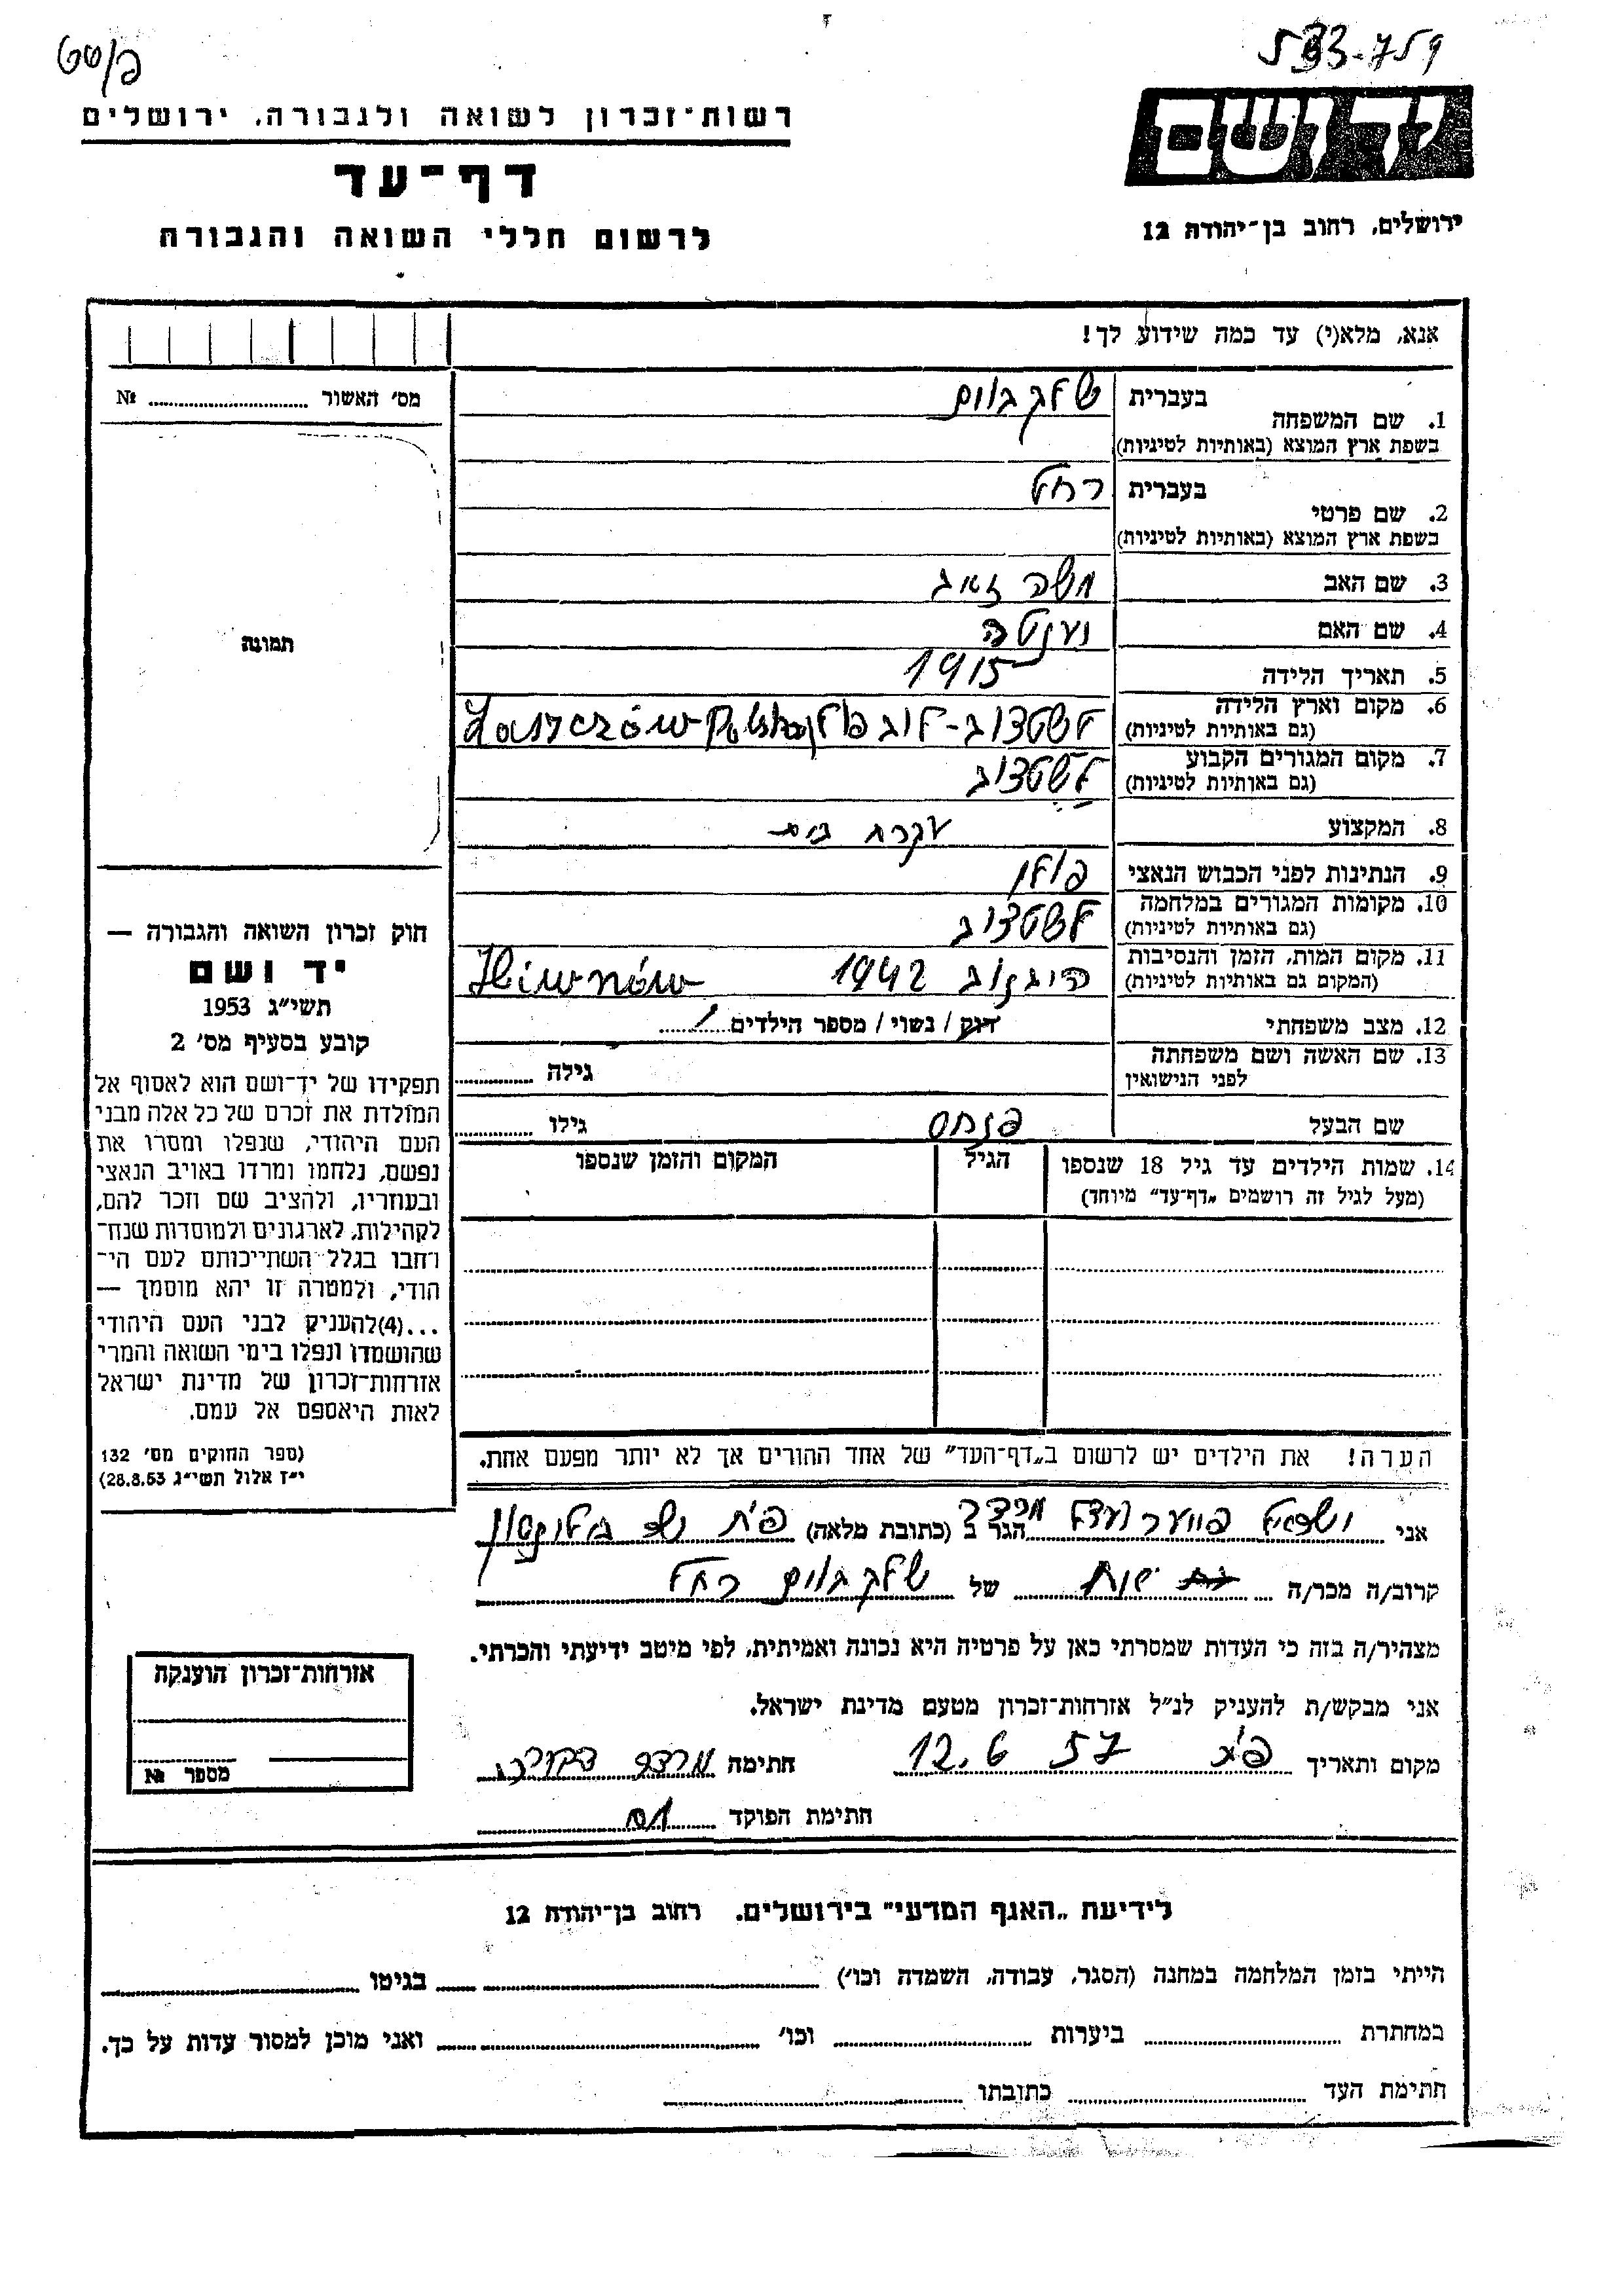 533-759
יד ושם
רשות־זכרון לשואה ולגבורה, ירושלים
דף־עד
לרשום חללי השואה והגבורה
ירושלים, רחוב בן־יהודה 12
אנא, מלא(י) עד כמה שידוע לך!
מס׳ האשור № 
1. שם המשפחה בעברית
בשפת ארץ המוצא (באותיות לטיניות)
2. שם פרטי בעברית רחל
בשפת ארץ המוצא (באותיות לטיניות)
3. שם האב משה
4. שם האם
5. תאריך הלידה 1915
6. מקום וארץ הלידה
(גם באותיות לטיניות) Łaszczów
7. מקום המגורים הקבוע
(גם באותיות לטיניות)
8. המקצוע עקרת בית
9. הנתינות לפני הכבוש הנאצי פולין
10. מקומות המגורים במלחמה
(גם באותיות לטיניות)
11. מקום המות, הזמן והנסיבות 1942
(המקום גם באותיות לטיניות)
12. מצב משפחתי רווק / נשוי / מספר הילדים 1
13. שם האשה ושם משפחתה
לפני הנישואין גילה
שם הבעל פנחס גילו
14. שמות הילדים עד גיל 18 שנספו הגיל המקום והזמן שנספו
(מעל לגיל זה רושמים „דף־עד״ מיוחד)
הערה! את הילדים יש לרשום ב„דף־העד״ של אחד ההורים אך לא יותר מפעם אחת.
תמונה
חוק זכרון השואה והגבורה —
יד ושם
תשי״ג 1953
קובע בסעיף מס׳ 2
תפקידו של יד־ושם הוא לאסוף אל
המולדת את זכרם של כל אלה מבני
העם היהודי, שנפלו ומסרו את
נפשם, נלחמו ומרדו באויב הנאצי
ובעוזריו, ולהציב שם וזכר להם,
לקהילות, לארגונים ולמוסדות שנח־
רחבו בגלל השתייכותם לעם הי־
הודי, ולמטרה זו יהא מוסמך —
...(4)להעניק לבני העם היהודי
שהושמדו ונפלו בימי השואה והמרי
אזרחות־זכרון של מדינת ישראל
לאות היאספם אל עמם.
(ספר החוקים מס׳ 132
י״ז אלול תשי״ג 28.8.53)
אני הגר ב (כתובת מלאה)
קרוב/ה מכר/ה של רחל
מצהיר/ה בזה כי העדות שמסרתי כאן על פרטיה היא נכונה ואמיתית, לפי מיטב ידיעתי והכרתי.
אני מבקש/ת להעניק לנ״ל אזרחות־זכרון מטעם מדינת ישראל.
מקום ותאריך 12.6 57 חתימה
חתימת הפוקד
אזרחות־זכרון הוענקה
מספר №
לידיעת „האגף המדעי״ בירושלים. רחוב בן־יהודה 12
הייתי בזמן המלחמה במחנה (הסגר, עבודה, השמדה וכו׳) בגיטו
במחתרת ביערות וכו׳ ואני מוכן למסור עדות על כך.
חתימת העד כתובתו